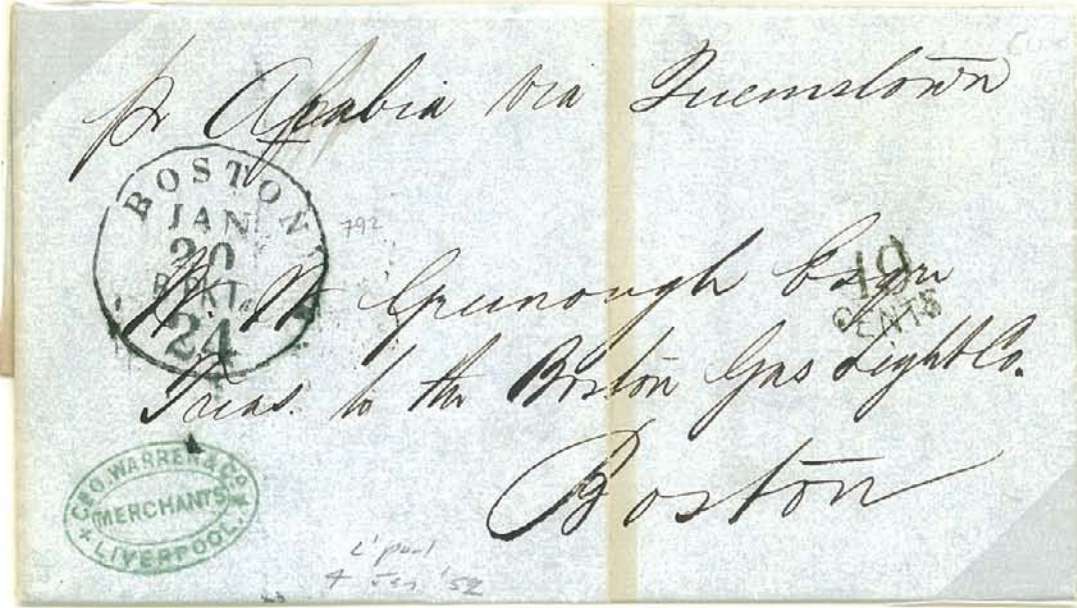 pr Arabia via Queenstown
BOSTON
JAN
20
BR. PKT.
24
792
W. W. Greenough Esqre
19
CENTS
Treas. to the Boston Gas Light Co.
Boston
GEO. WARREN & CO.
MERCHANTS
LIVERPOOL.
L'pool
4 Jan '52